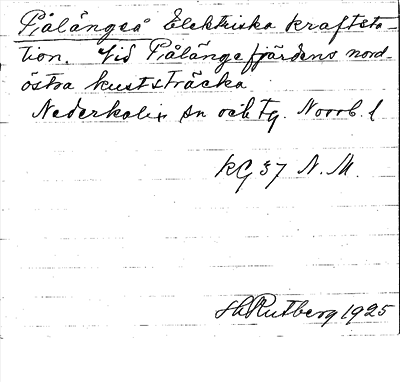 Pålångeå Elektriska kraftsta-
tion. Vid Pålångefjärdens nord-
östra kuststräcka
Nederkalix sn och tg. Norrb. l
KG 37 N. M.
Hh Rutberg 1925